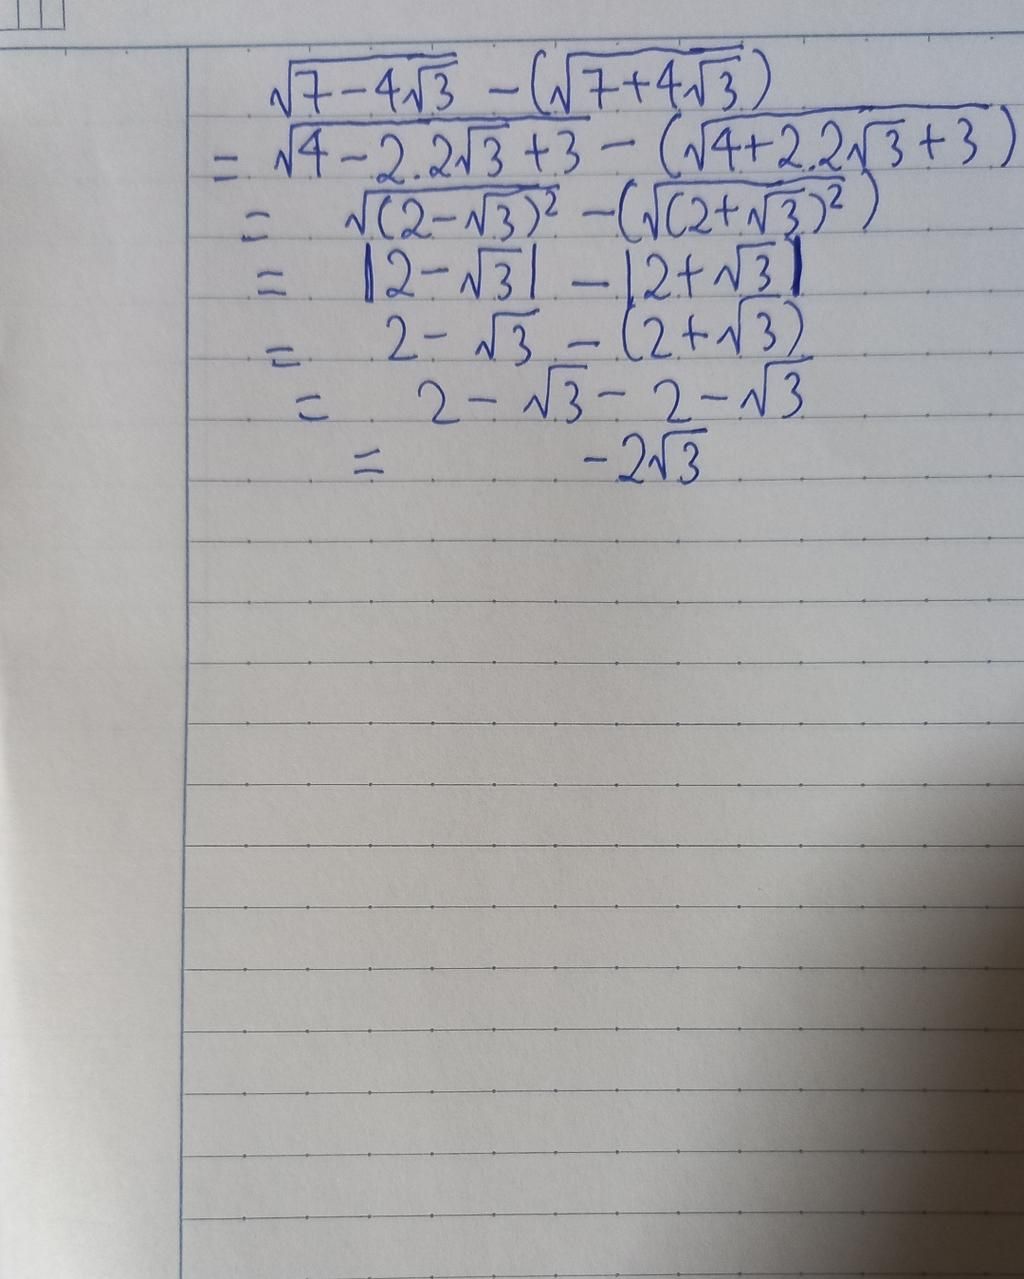 √(7-4√3) - (√(7+4√3))
= √(4-2.2√3+3) - (√(4+2.2√3+3))
= √((2-√3)²) - (√((2+√3)²))
= |2-√3| - |2+√3|
= 2-√3 - (2+√3)
= 2-√3-2-√3
= -2√3